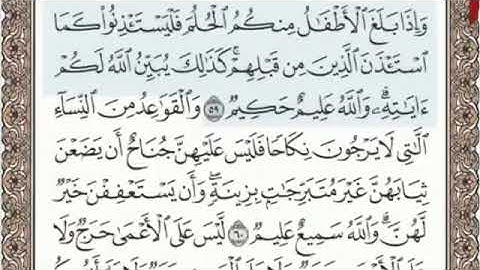 وَإِذَا بَلَغَ ٱلْأَطْفَٰلُ مِنكُمُ ٱلْحُلُمَ فَلْيَسْتَـْٔذِنُوا۟ كَمَا
ٱسْتَـْٔذَنَ ٱلَّذِينَ مِن قَبْلِهِمْ ۚ كَذَٰلِكَ يُبَيِّنُ ٱللَّهُ لَكُمْ
ءَايَٰتِهِۦ ۗ وَٱللَّهُ عَلِيمٌ حَكِيمٌ ٥٩ وَٱلْقَوَٰعِدُ مِنَ ٱلنِّسَآءِ
ٱلَّٰتِى لَا يَرْجُونَ نِكَاحًا فَلَيْسَ عَلَيْهِنَّ جُنَاحٌ أَن يَضَعْنَ
ثِيَابَهُنَّ غَيْرَ مُتَبَرِّجَٰتٍۭ بِزِينَةٍ ۖ وَأَن يَسْتَعْفِفْنَ خَيْرٌ
لَّهُنَّ ۗ وَٱللَّهُ سَمِيعٌ عَلِيمٌ ٦٠ لَّيْسَ عَلَى ٱلْأَعْمَىٰ حَرَجٌ وَلَا